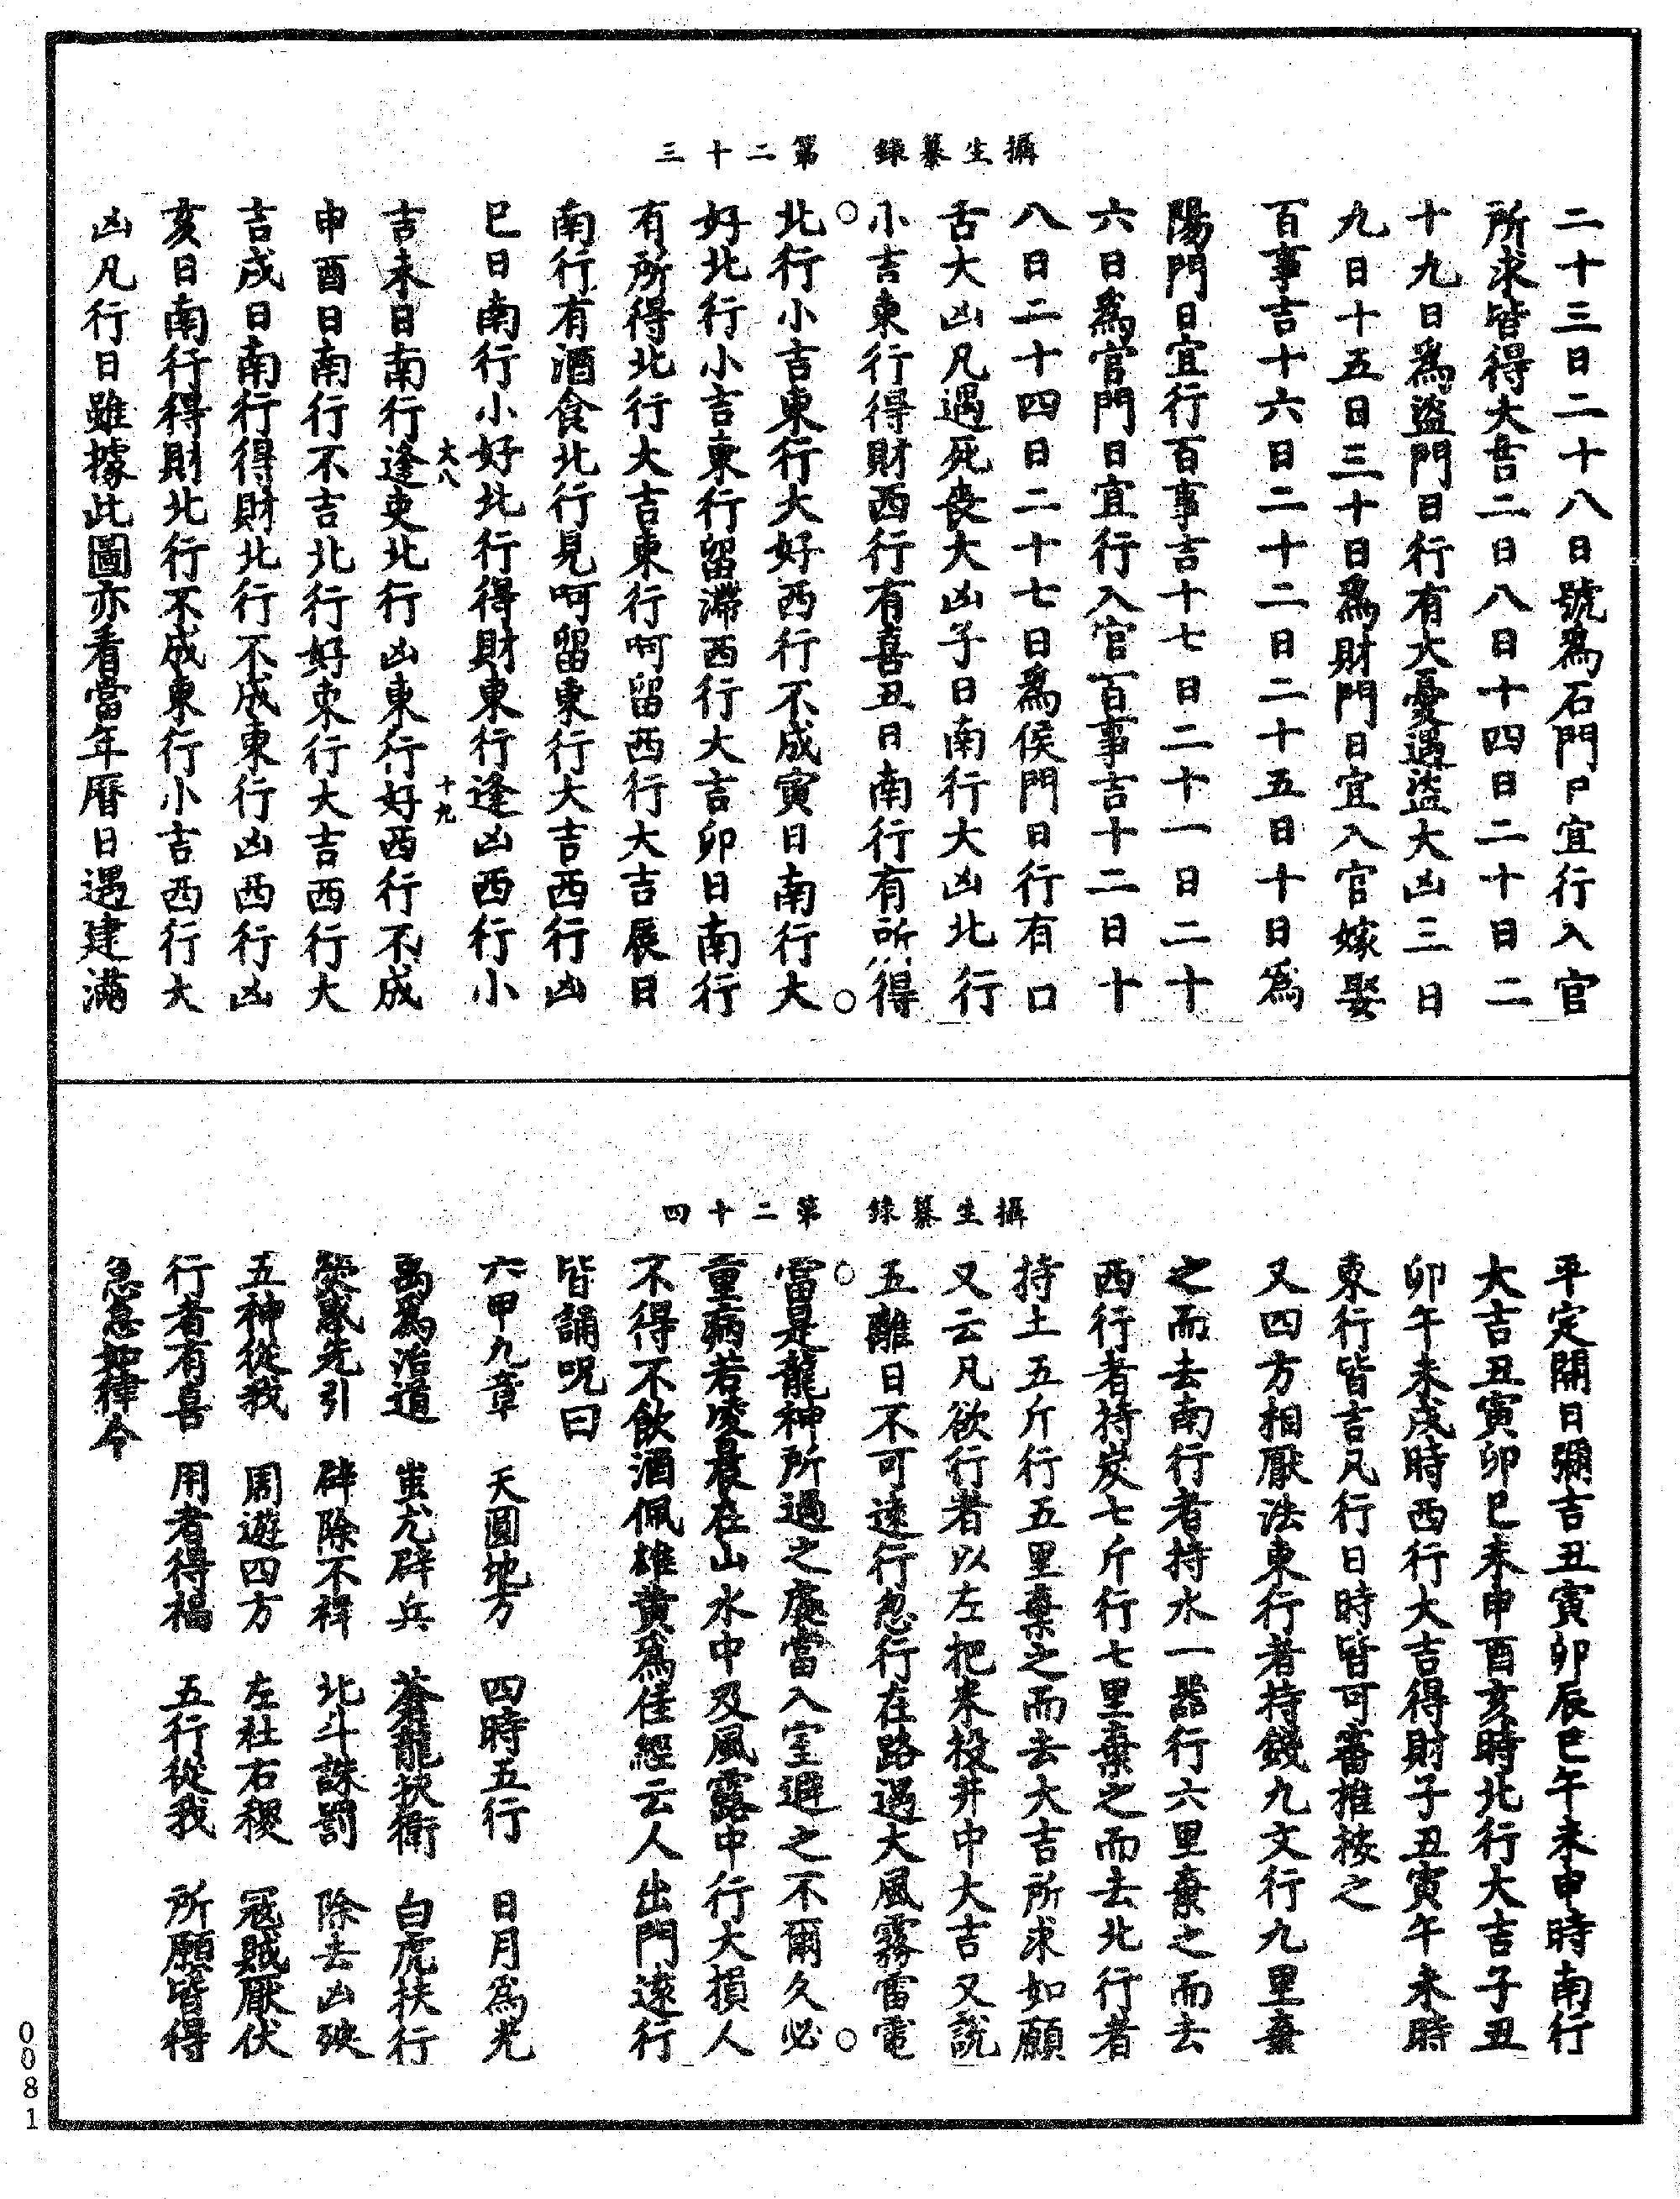 攝生纂錄　第二十三
二十三日二十八日號為石門日宜行入官
所求皆得大吉二日八日十四日二十日二
十九日為盜門日行有大憂遇盜大凶三日
九日十五日三十日為財門日宜入官嫁娶
百事吉十六日二十二日二十五日十日為
陽門日宜行百事吉十七日二十一日二十
六日為官門日宜行入官百事吉十二日十
八日二十四日二十七日為侯門日行有口
舌大凶凡遇死喪大凶子日南行大凶北行
小吉東行得財西行有喜丑日南行有所得
北行小吉東行大好西行不成寅日南行大
好北行小吉東行留滯西行大吉卯日南行
有所得北行大吉東行呵留西行大吉辰日
南行有酒食北行見呵留東行大吉西行凶
巳日南行小好北行得財東行逢凶西行小
大八　十九
吉未日南行逢吏北行凶東行好西行不成
申酉日南行不吉北行好東行大吉西行大
吉戌日南行得財北行不成東行凶西行凶
亥日南行得財北行不成東行小吉西行大
凶凡行日雖據此圖亦看當年曆日遇建滿
攝生纂錄　第二十四
平定開日彌吉丑寅卯辰巳午未申時南行
大吉丑寅卯巳未申酉亥時北行大吉子丑
卯午未戌時西行大吉得財子丑寅午未時
東行皆吉凡行日時皆可審推按之
又四方相厭法東行者持錢九文行九里棄
之而去南行者持水一器行六里棄之而去
西行者持炭七斤行七里棄之而去北行者
持土五斤行五里棄之而去大吉所求如願
又云凡欲行者以左把米投井中大吉又說
五離日不可遠行忽行在路遇大風霧雷電
當是龍神所過之處當入室避之不爾久必
重病若凌晨在山水中及風露中行大損人
不得不飲酒佩雄黃為佳經云人出門遠行
皆誦呪曰
六甲九章　天圓地方　四時五行　日月為光
禹為治道　蚩尤辟兵　蒼龍挾衛　白虎扶行
熒惑先引　辟除不祥　北斗誅罰　除去凶殃
五神從我　周遊四方　左社右稷　寇賊厭伏
行者有喜　用者得福　五行從我　所願皆得
急急如律令
0081